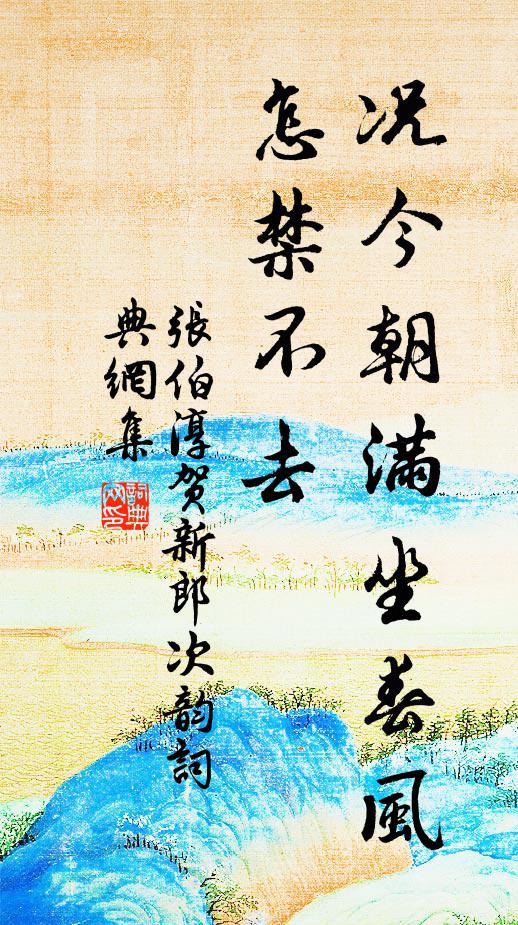 况今朝满坐春風
怎禁不去
張伯淳贺新郎次韵詞
典網集
詞典
网印